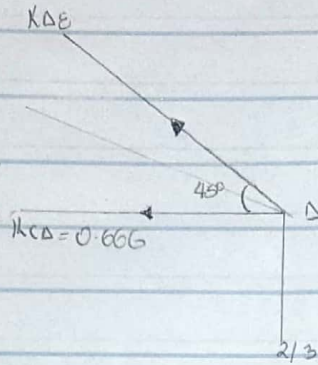 KΔE
45°
Δ
KCΔ = 0.666
2/3